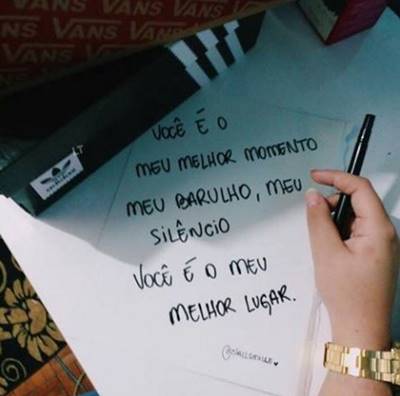 VANS VANS VANS
VANS VANS VANS VANS
VOCÊ É O
MEU MELHOR MOMENTO
MEU BARULHO, MEU
SILÊNCIO
VOCÊ É O MEU
MELHOR LUGAR.